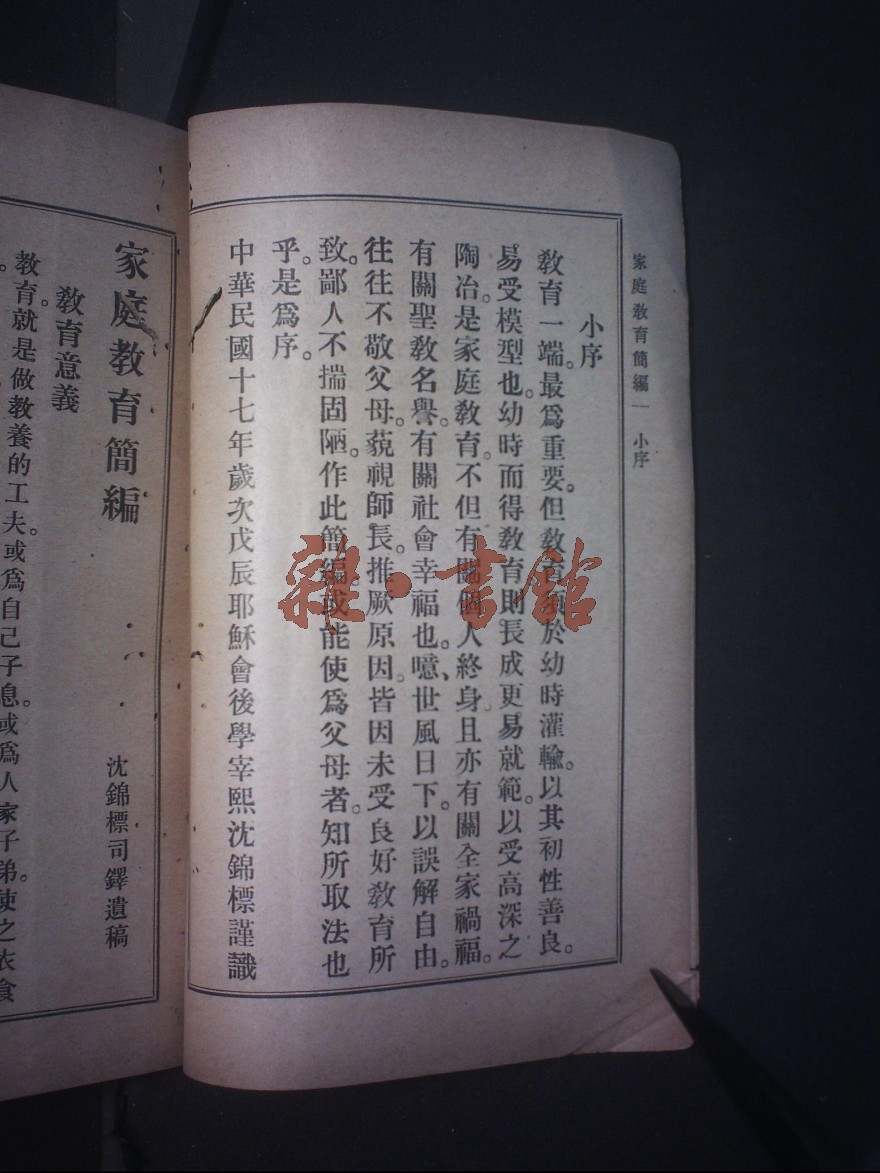 家庭教育簡編 小序
小序
教育一端。最爲重要。但教育須於幼時灌輸。以其初性善良。
易受模型也。幼時而得教育。則長成更易就範。以受高深之
陶冶。是家庭教育。不但有關個人終身。且亦有關全家禍福。
有關聖教名譽。有關社會幸福也。噫、世風日下。以誤解自由。
往往不敬父母。藐視師長。推厥原因。皆因未受良好教育所
致。鄙人不揣固陋。作此簡編。或能使爲父母者。知所取法也
乎。是爲序。
中華民國十七年歲次戊辰耶穌會後學宰熙沈錦標謹識
家庭教育簡編
沈錦標司鐸遺稿
教育意義
教育。就是做教養的工夫。或爲自己子息。或爲人家子弟。使之衣食
雜·書館